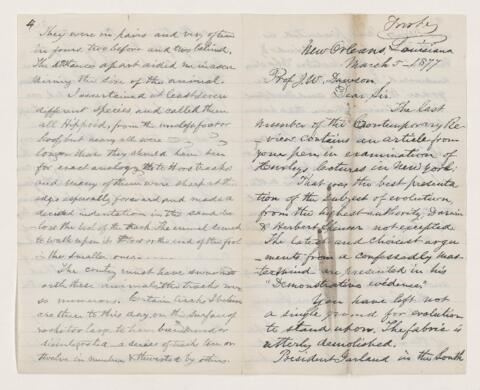 4
They were in pairs and very often
in fours, two before and two behind.
The distances apart aided me in ascer-
taining the size of the animal.
I ascertained at least seven
different species and called them
all Hippoid, from the undivided foot or
hoof, but nearly all were
longer than they should have been
for exact analogy to Horse tracks
and many of them were sharp at the
edge especially forward and made a
decided indentation in the sand be-
low the level of the track. The animal seemed
to walk upon it or the end of the foot
in the smaller ones.
The country must have swarmed
with these animals, the tracks were
so numerous. Certain tracks I believe
are there to this day, on the surface of
rocks too large to have been
a series of tracks ten or
twelve in number & by others.
New Orleans, Louisiana
March 5 - 1877
Prof J. W. Dawson,
Dear Sir.
The last
number of the Contemporary Re-
view contains an article from
your pen in examination of
Huxleys lectures in New York.
That was the best presenta
tion of the subject of evolution,
from the highest authority, Darwin
& Herbert Spencer not excepted.
The latest and choicest argu
ments from a confessedly mas-
ter mind are presented in his
"Demonstrative evidence."
You have left not
a single ground for evolution
to stand upon. The fabric is
utterly demolished.
President Garland in the South